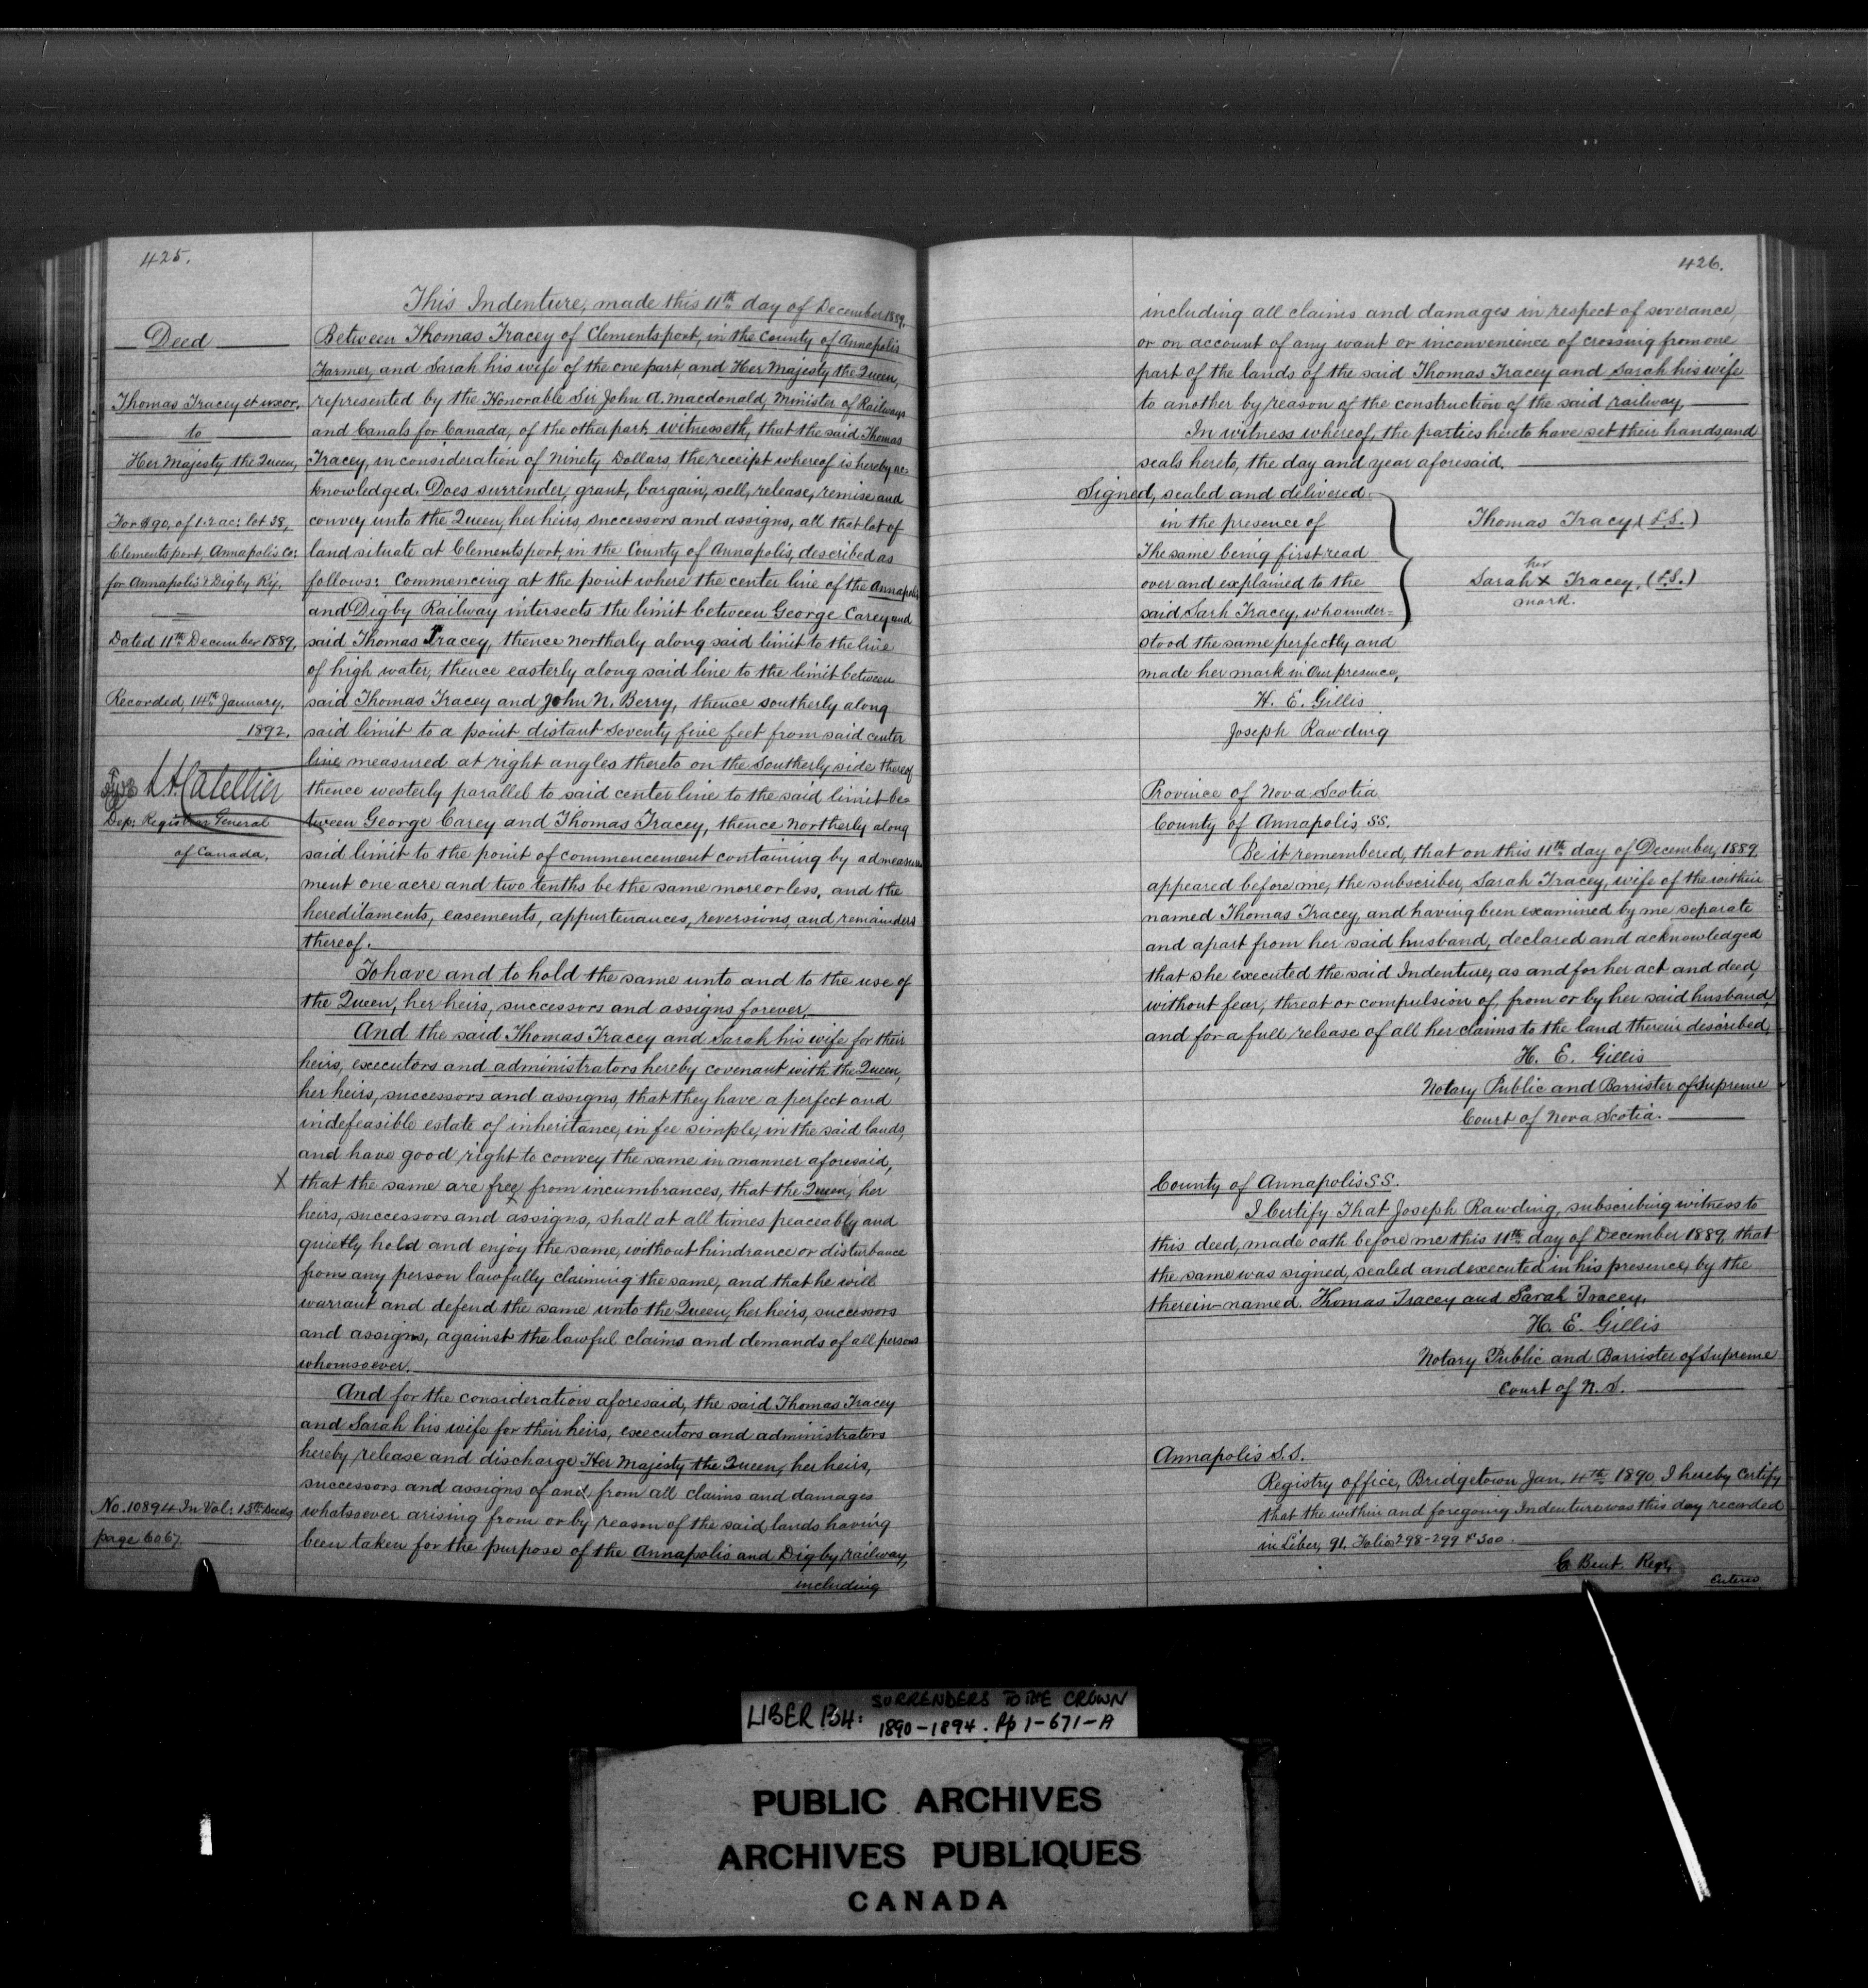 425.
Deed
Thomas Tracey et uxor.
to
Her Majesty the Queen,
For $90, of 1.2 ac: lot 38,
Clementsport, Annapolis Co:
for Annapolis & Digby Ry.
Dated 11th December 1889,
Recorded, 14th January,
1892.
L A Catellier
Dep: Registrar General
of Canada,
No. 10894 In Vol: 13th Deeds
page 6067.
This Indenture, made this 11th day of December 1889,
Between Thomas Tracey of Clementsport, in the County of Annapolis
Farmer, and Sarah his wife of the one part, and Her Majesty the Queen,
represented by the Honorable Sir John A. Macdonald, Minister of Railways
and Canals for Canada, of the other part, witnesseth, that the said Thomas
Tracey, in consideration of Ninety Dollars, the receipt whereof is hereby ac-
knowledged. Does surrender, grant, bargain, sell, release, remise and
convey unto the Queen, her heirs, successors and assigns, all that lot of
land situate at Clementsport, in the County of Annapolis, described as
follows: Commencing at the point where the center line of the Annapolis
and Digby Railway intersects the limit between George Carey and
said Thomas Tracey, thence Northerly along said limit to the line
of high water, thence easterly along said line to the limit between
said Thomas Tracey and John N. Berry, thence southerly along
said limit to a point distant seventy five feet from said center
line, measured at right angles thereto on the Southerly side thereof
thence westerly parallel to said center line to the said limit be=
tween George Carey and Thomas Tracey, thence Northerly along
said limit to the point of commencement containing by admeasure
ment one acre and two tenths be the same more or less, and the
hereditaments, easements, appurtenances, reversions, and remainders
thereof.
To have and to hold the same unto and to the use of
the Queen, her heirs, successors and assigns forever.
And the said Thomas Tracey and Sarah his wife for their
heirs, executors and administrators hereby covenant with the Queen,
her heirs, successors and assigns, that they have a perfect and
indefeasible estate of inheritance, in fee simple, in the said lands,
and have good right to convey the same in manner aforesaid,
X that the same are free from incumbrances, that the Queen, her
heirs, successors and assigns, shall at all times peaceably and
quietly hold and enjoy the same, without hindrance or disturbance
from any person lawfully claiming the same, and that he will
warrant and defend the same unto the Queen, her heirs, successors
and assigns, against the lawful claims and demands of all persons
whomsoever.
And for the consideration aforesaid, the said Thomas Tracey
and Sarah his wife for their heirs, executors and administrators
hereby release and discharge Her Majesty the Queen, her heirs,
successors and assigns of and from all claims and damages
whatsoever arising from or by reason of the said lands having
been taken for the purpose of the Annapolis and Digby railway,
including
426.
including all claims and damages in respect of severance,
or on account of any want or inconvenience of crossing from one
part of the lands of the said Thomas Tracey and Sarah his wife
to another by reason of the construction of the said railway,
In witness whereof, the parties hereto have set their hands and
seals hereto, the day and year aforesaid.
Signed, sealed and delivered
in the presence of
The same being first read
over and explained to the
said Sarh Tracey, who under=
stood the same perfectly and
made her mark in Our presence,
H. E. Gillis
Joseph Rawding
Thomas Tracy (L.S.)
her
Sarah X Tracey, (L.S.)
mark.
Province of Nova Scotia
County of Annapolis, SS.
Be it remembered, that on this 11th day of December, 1889,
appeared before me, the subscriber, Sarah Tracey, wife of the within
named Thomas Tracey, and having been examined by me separate
and apart from her said husband, declared and acknowledged
that she executed the said Indenture, as and for her act and deed,
without fear, threat or compulsion of, from or by her said husband,
and for a full release of all her claims to the land therein described,
H. E. Gillis
Notary Public and Barrister of Supreme
Court of Nova Scotia.
County of Annapolis S.S.
I Certify That Joseph Rawding, subscribing witness to
this deed, made oath before me this 11th day of December 1889, that
the same was signed, sealed and executed in his presence, by the
therein-named. Thomas Tracey and Sarah Tracey,
H. E. Gillis
Notary Public and Barrister of Supreme
Court of N. S.
Annapolis S.S.
Registry office, Bridgetown Jan. 4th 1890, I hereby Certify
that the within and foregoing Indenture was this day recorded
in Liber, 91. Folios 298-299 & 300.
E Bent. Regr,
Enteres
LIBER 134:
SURRENDERS TO THE CROWN
1890-1894. Pp 1-671-A
PUBLIC ARCHIVES
ARCHIVES PUBLIQUES
CANADA